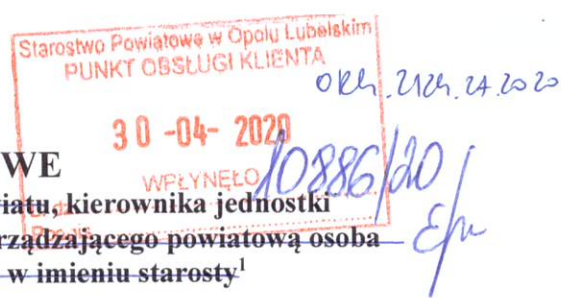 Starostwo Powiatowe w Opolu Lubelskim
PUNKT OBSŁUGI KLIENTA
30 -04- 2020
WPŁYNĘŁO
10886/20
WE
iatu, kierownika jednostki
rządzającego powiatową osoba
w imieniu starosty¹